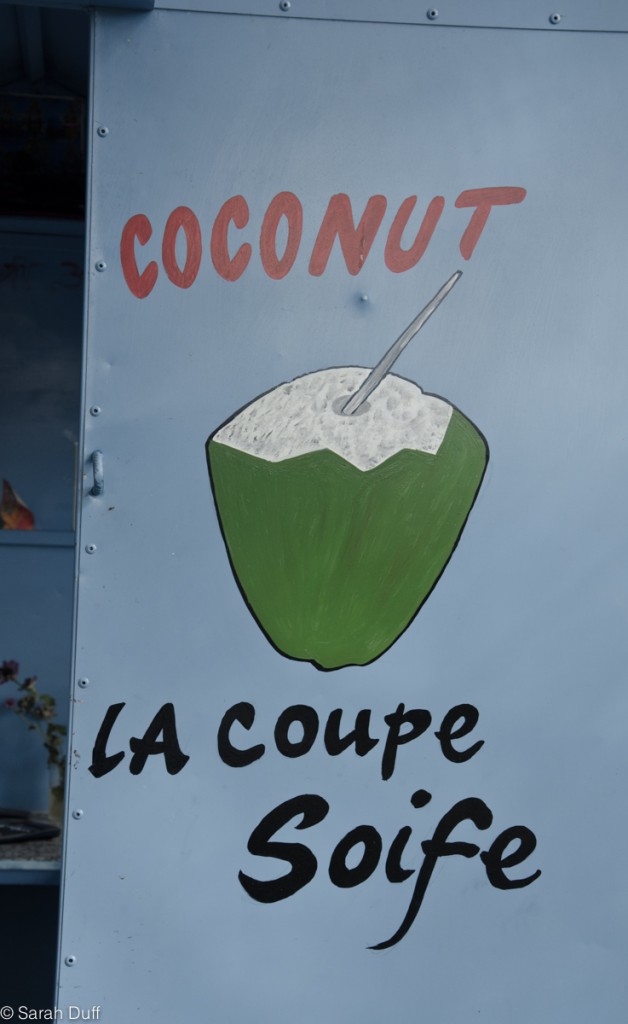 COCONUT
LA coupe
Soife
© Sarah Duff